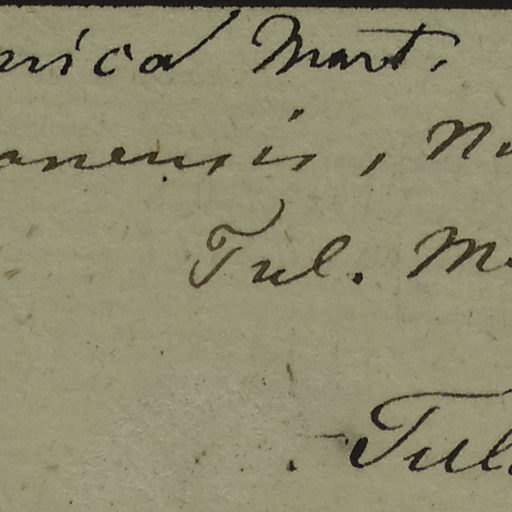 erica Mart.
anensis, N
Tul. M
Tul